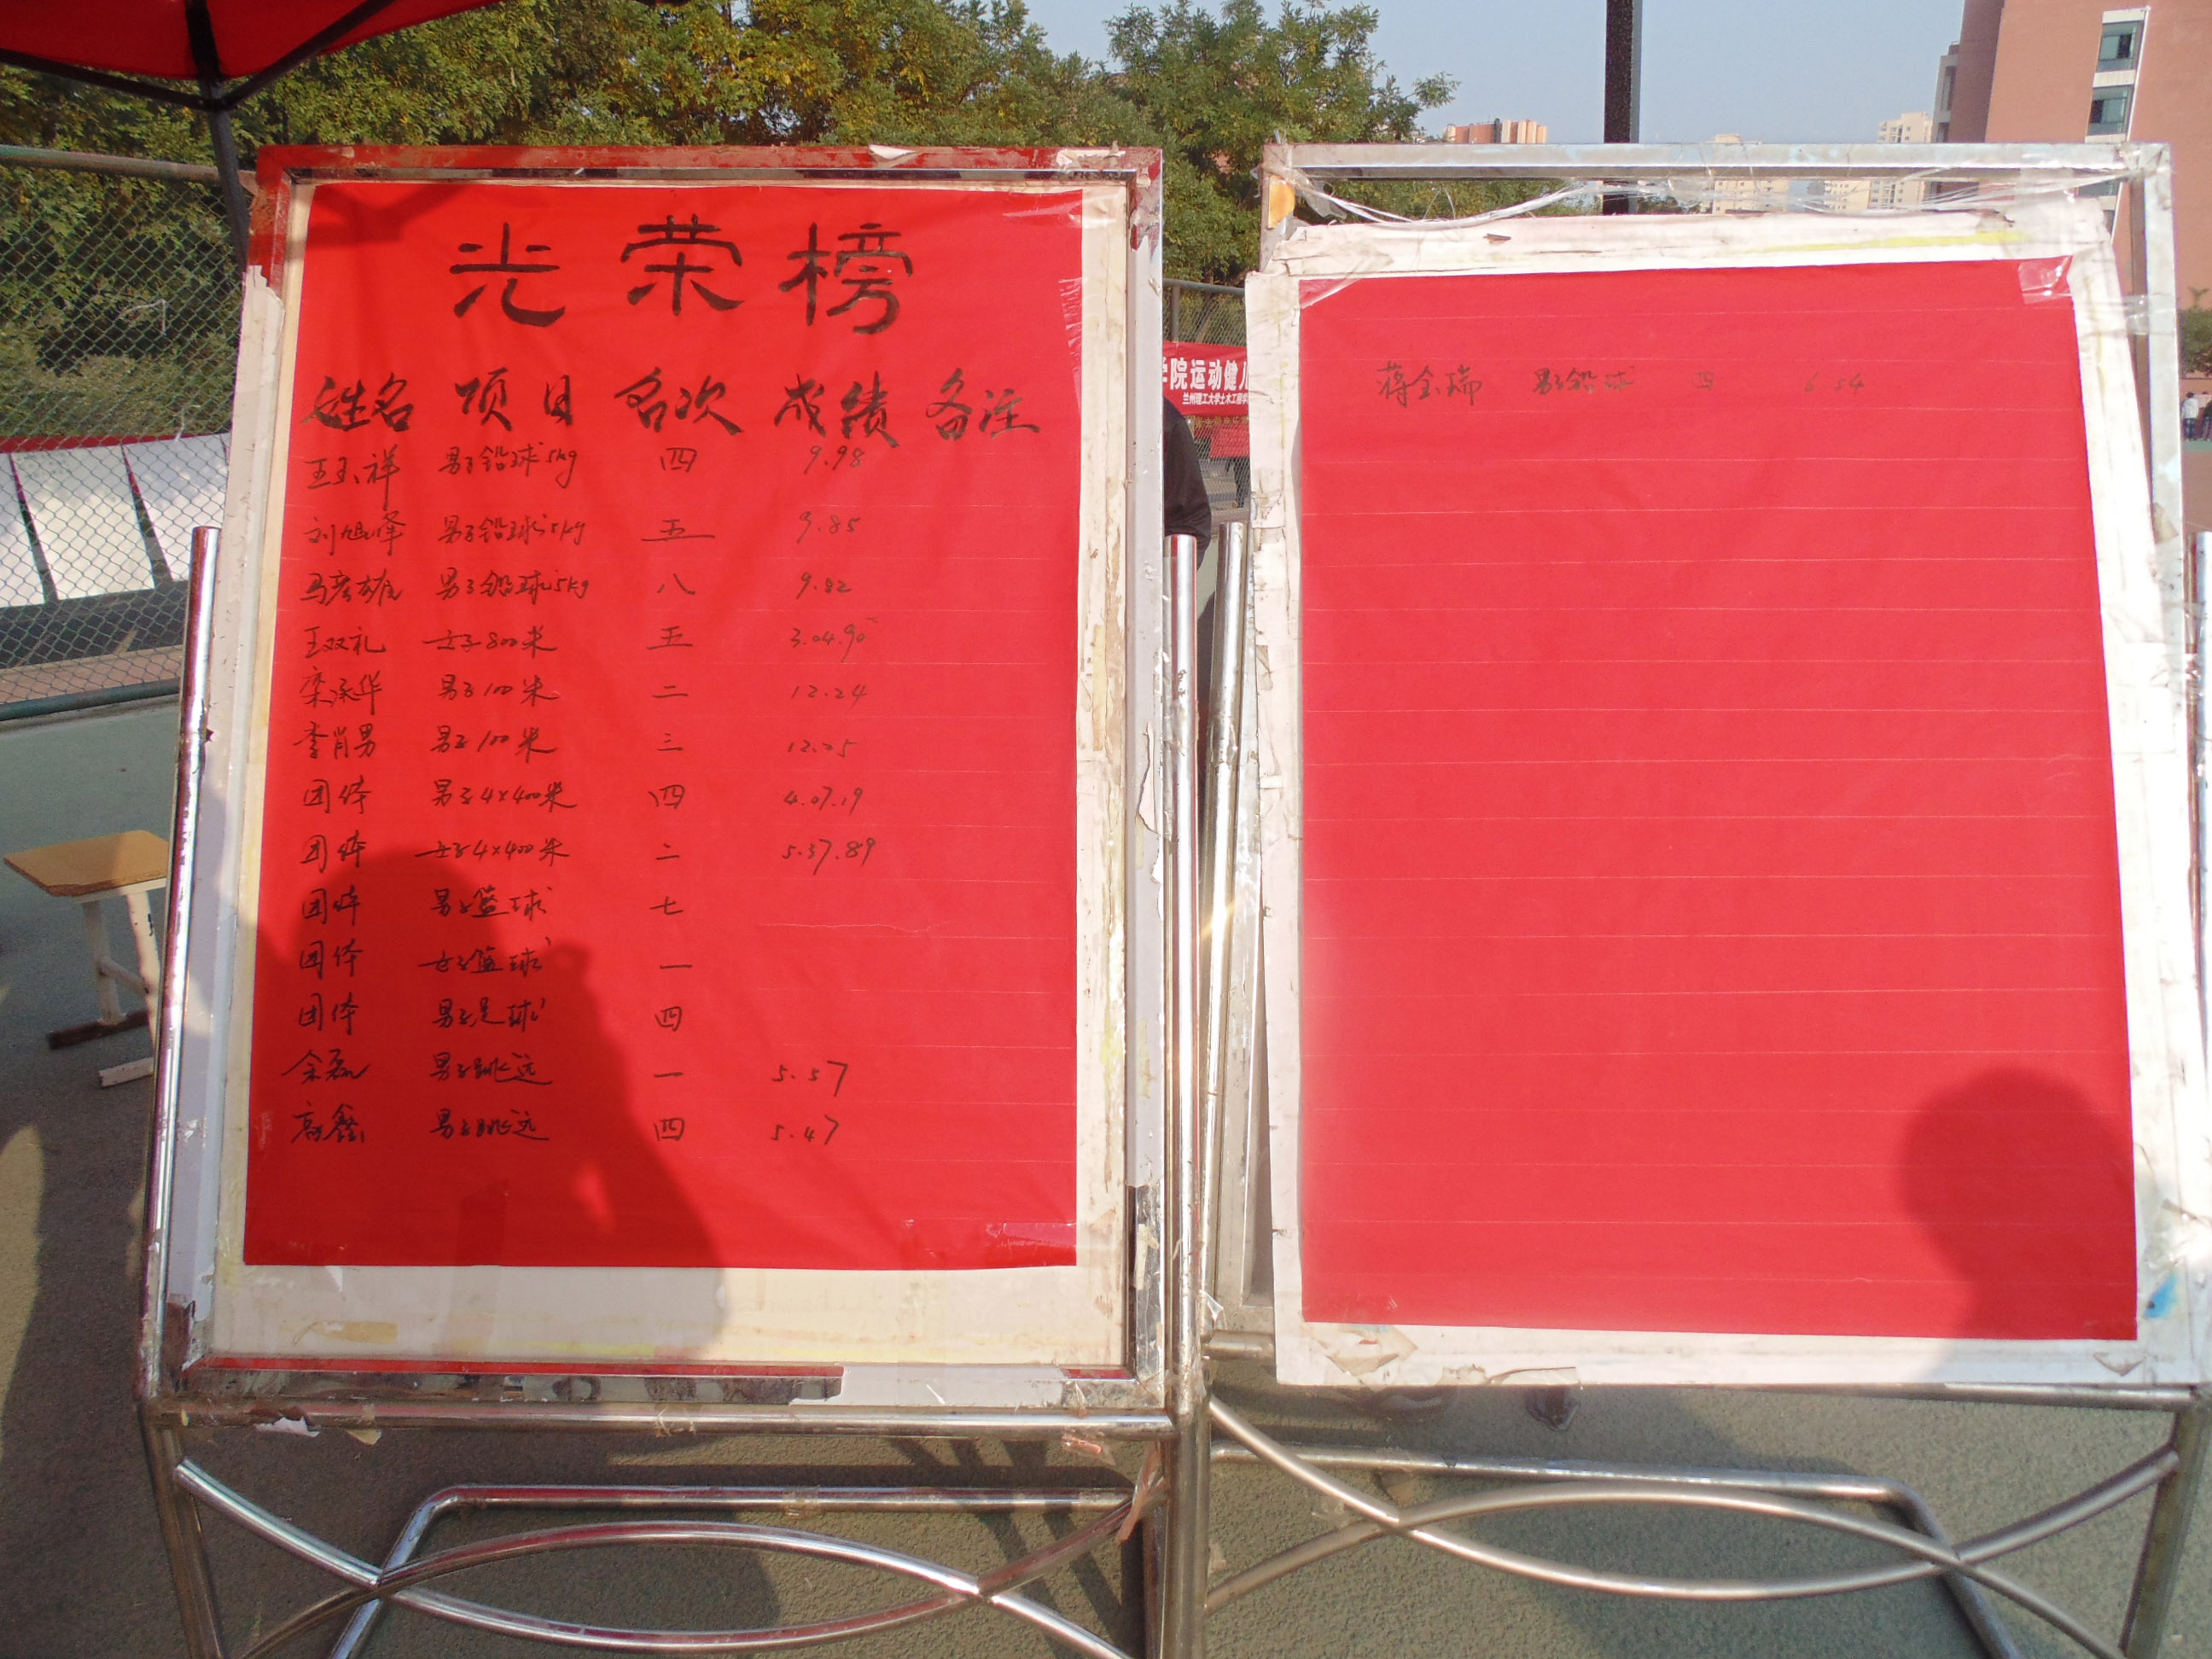 光荣榜
姓名 项目 名次 成绩 备注
王玉祥 男子铅球5kg 四 9.98
刘旭峰 男子铅球5kg 五 9.85
马彦雄 男子铅球5kg 八 9.82
王双礼 女子800米 五 3.04.90
栾承华 男子100米 二 12.24
李肖男 男子100米 三 12.25
团体 男子4×400米 四 4.07.19
团体 女子4×400米 二 5.37.89
团体 男子篮球 七
团体 女子篮球 一
团体 男子足球 四
余磊 男子跳远 一 5.57
高鑫 男子跳远 四 5.47
学院运动健儿
兰州理工大学土木工程学
蒋金瑞 男子铅球 四 6.54